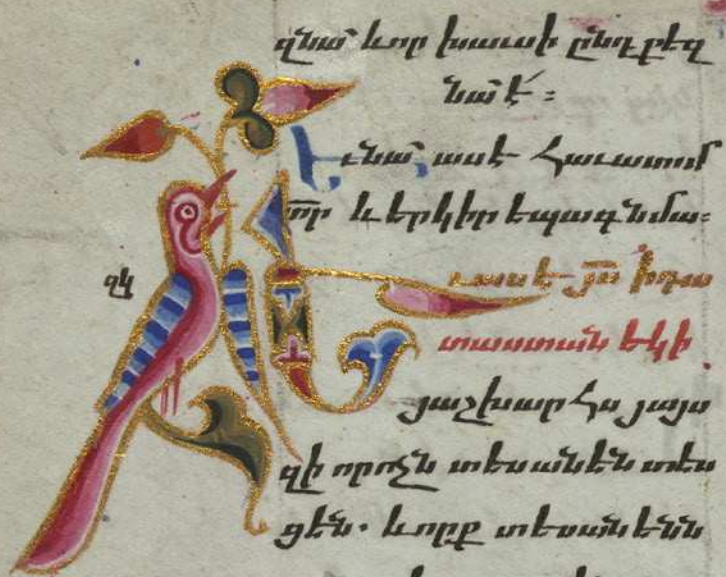 զնա՛ և որ խաւսի ընդ քեզ
նա է՛ ։
Եւ նա՛, ասէ հաւատամ
տ̅ր և երկիր եպագ նմա։
զկ
Եւ ասէ յ̅ս ի դա
տաստան եկի
յաշխարհս յայս
զի որ ոչն տեսանեն տես
ցեն. և որք տեսանենն